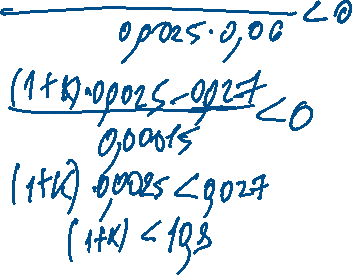 ——— < 0
0,0025·0,06
(1+K)·0,0025-0,027 < 0
0,00015
(1+K)·0,0025<0,027
(1+K)<10,8